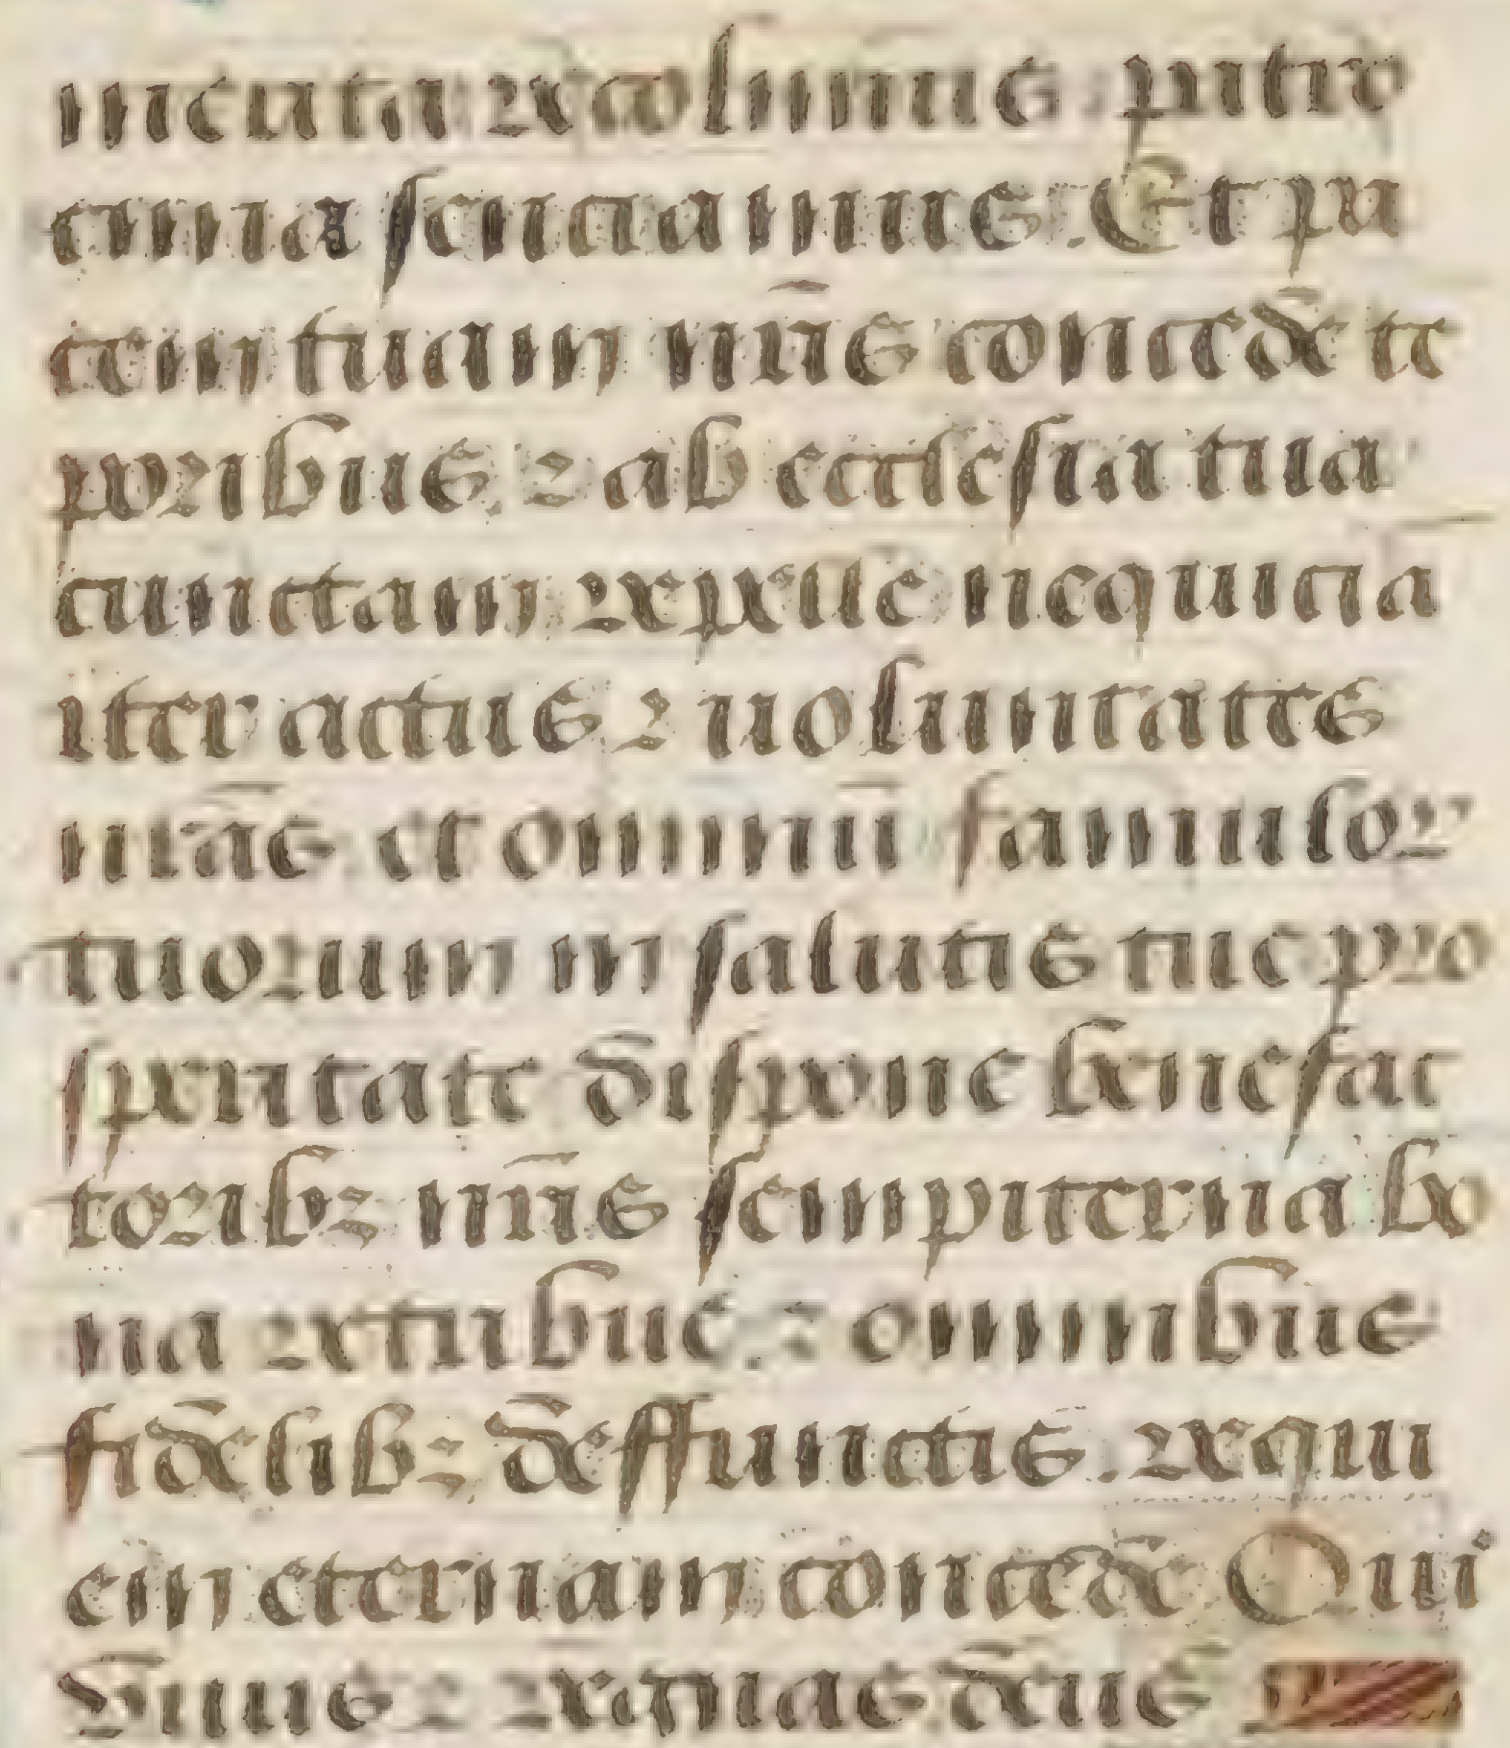 meuta recolimus. patro
cinia senciamus. Et pa
cem tuam nr̄is concede te
poribus. ⁊ ab ecclesia tua
cunctam repelle nequicia
iter actus ⁊ uoluntates
nr̄as et omniū famulor
tuorum in salutis tue pro
speritate dispone benefac
toribꝫ nr̄is sempiterna bo
na retribue. ⁊ omnibus
fidelibꝫ deffunctis. requi
em eternam concede Qui
viuis ⁊ regnas deus